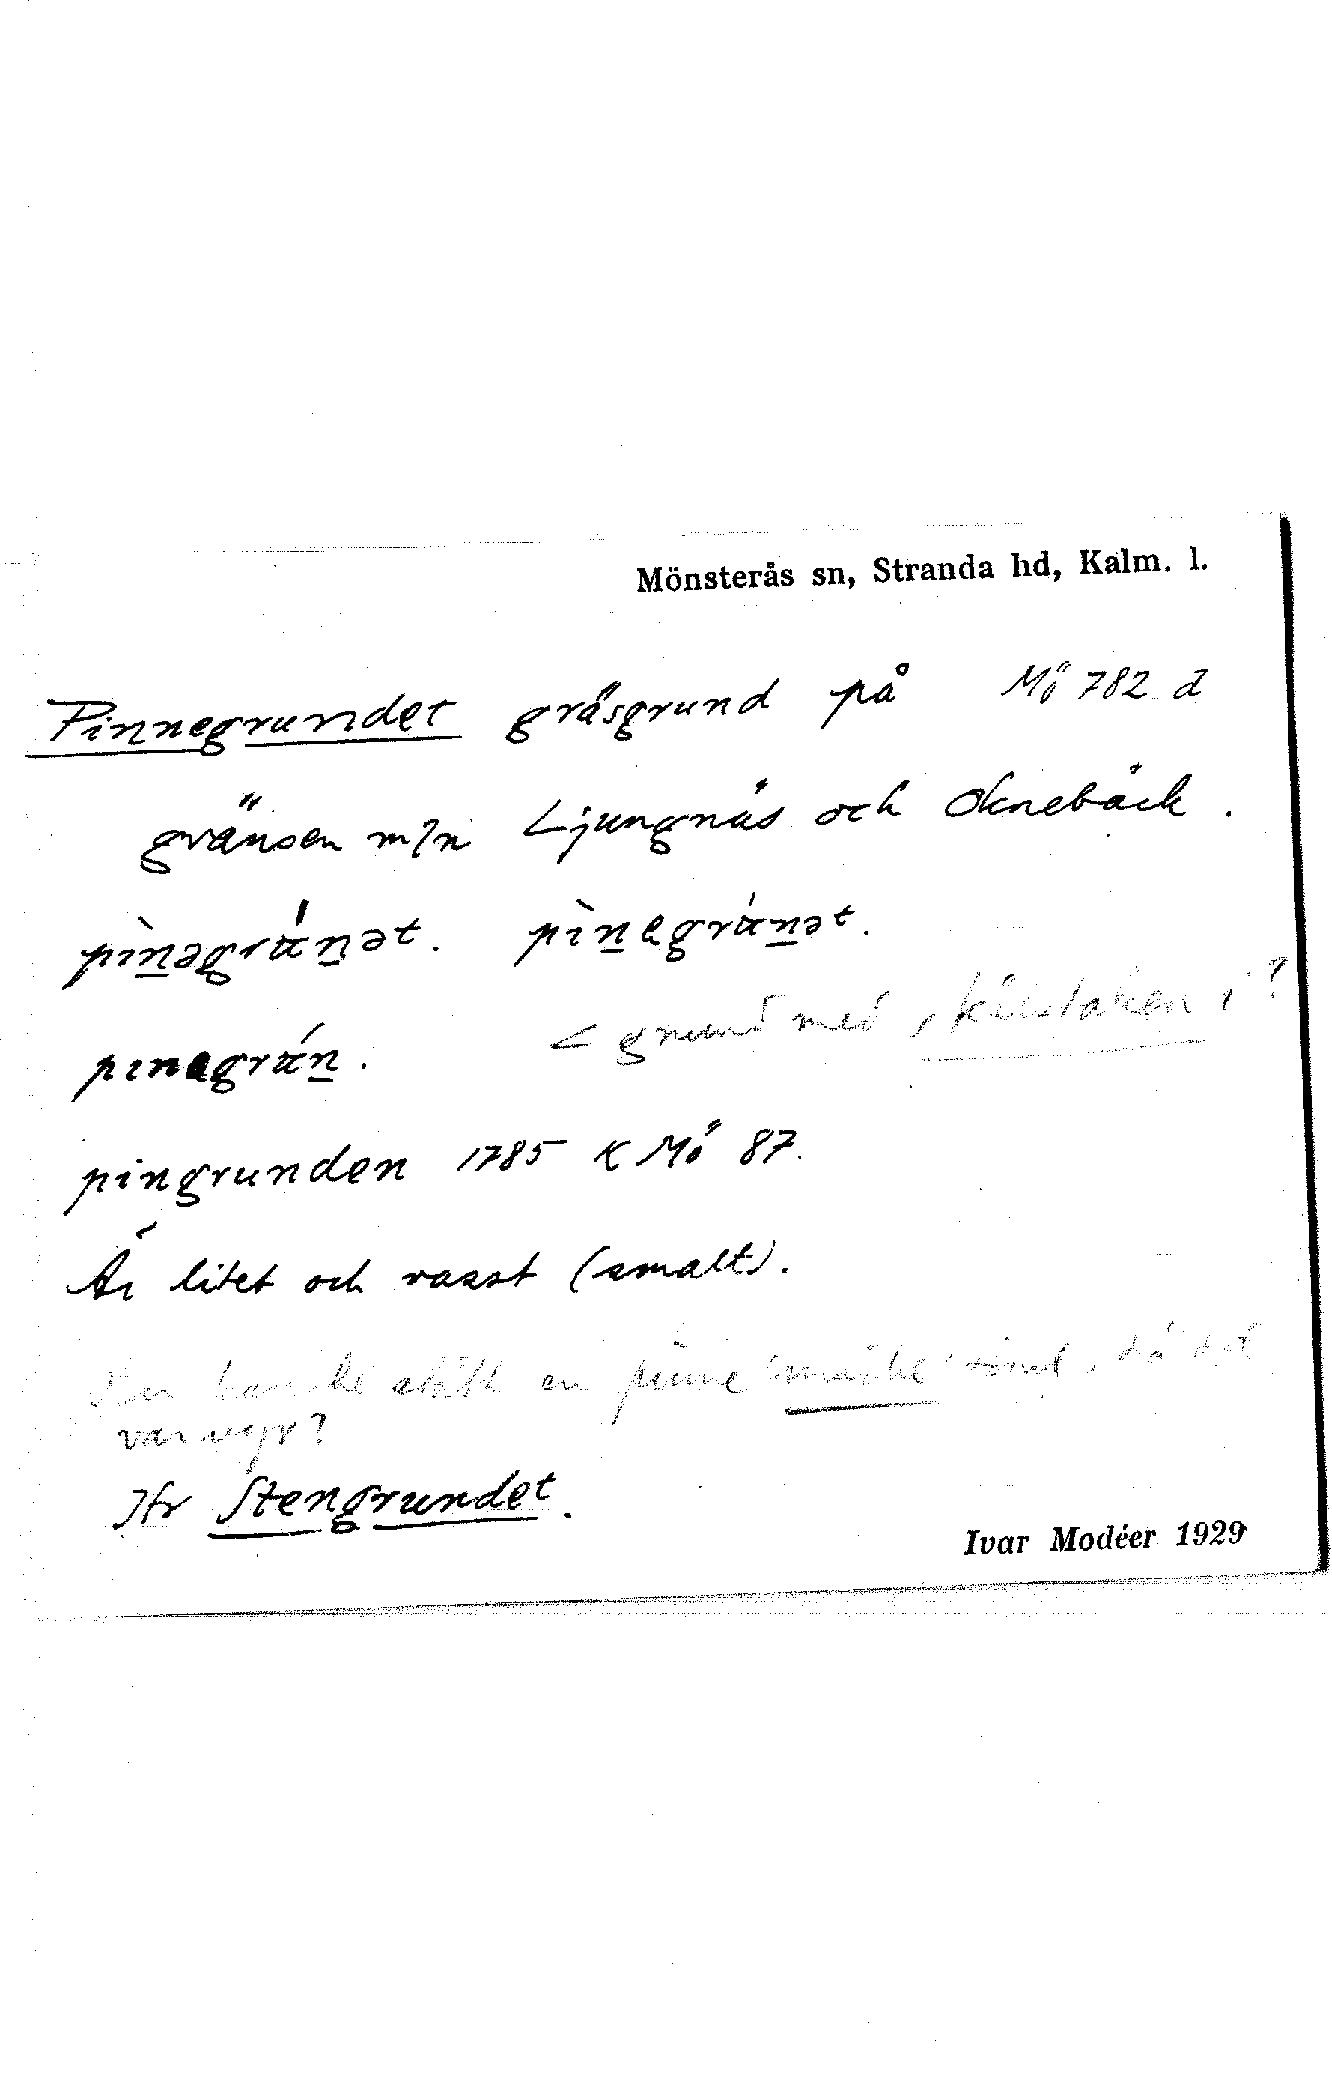 Mönsterås sn, Stranda hd, Kalm. l.
Pinnegrundet gräsgrund på Mö 782 d
gränsen m/n Ljungnäs och Oknebäck.
pìnəgránət. pìnegránət.
pinegrán. < grund med i?
pingrunden 1785 K Mö 87.
Är litet och vasst (smalt).
en pinne då det
var nyr?
Jfr Stengrundet.
Ivar Modéer 1929